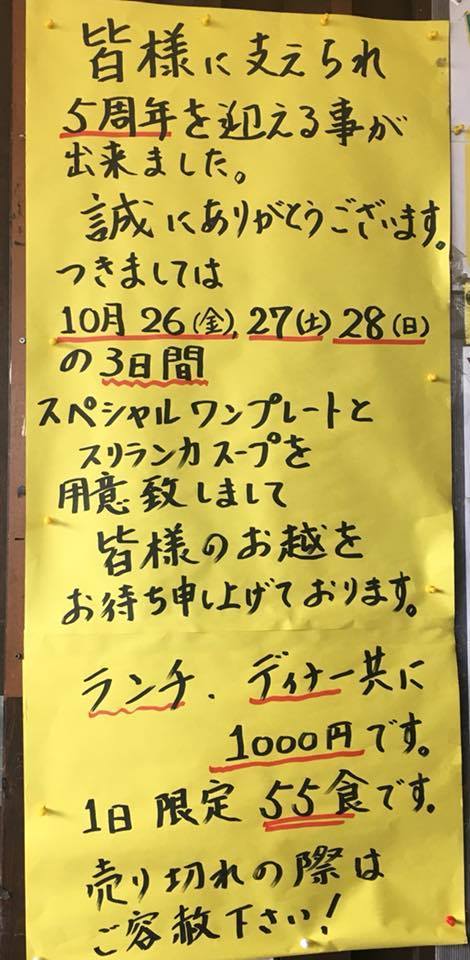 皆様に支えられ
5周年を迎える事が
出来ました。
誠にありがとうございます。
つきましては
10月26(金),27(土)28(日)
の3日間
スペシャルワンプレートと
スリランカスープを
用意致しまして
皆様のお越を
お待ち申し上げております。
ランチ、ディナー共に
1000円です。
1日限定55食です。
売り切れの際は
ご容赦下さい!